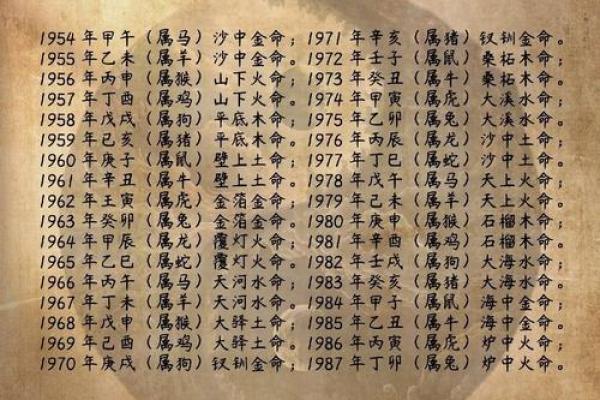 1954 年甲午（属马）沙中金命；1971 年辛亥（属猪）钗钏金命。
1955 年乙未（属羊）沙中金命。1972 年壬子（属鼠）桑柘木命。
1956 年丙申（属猴）山下火命；1973 年癸丑（属牛）桑柘木命。
1957 年丁酉（属鸡）山下火命。1974 年甲寅（属虎）大溪水命。
1958 年戊戌（属狗）平底木命；1975 年乙卯（属兔）大溪水命。
1959 年己亥（属猪）平底木命。1976 年丙辰（属龙）沙中土命；
1960 年庚子（属鼠）壁上土命；1977 年丁巳（属蛇）沙中土命。
1961 年辛丑（属牛）壁上土命。1978 年戊午（属马）天上火命；
1962 年壬寅（属虎）金箔金命；1979 年己未（属羊）天上火命。
1963 年癸卯（属兔）金箔金命。1980 年庚申（属猴）石榴木命；
1964 年甲辰（属龙）覆灯火命；1981 年辛酉（属鸡）石榴木命。
1965 年乙巳（属蛇）覆灯火命。1982 年壬戌（属狗）大海水命；
1966 年丙午（属马）天河水命；1983 年癸亥（属猪）大海水命。
1967 年丁未（属羊）天河水命。1984 年甲子（属鼠）海中金命；
1968 年戊申（属猴）大驿土命；1985 年乙丑（属牛）海中金命。
1969 年己酉（属鸡）大驿土命。1986 年丙寅（属虎）炉中火命；
1970 年庚戌（属狗）钗钏金命；1987 年丁卯（属兔）炉中火命。